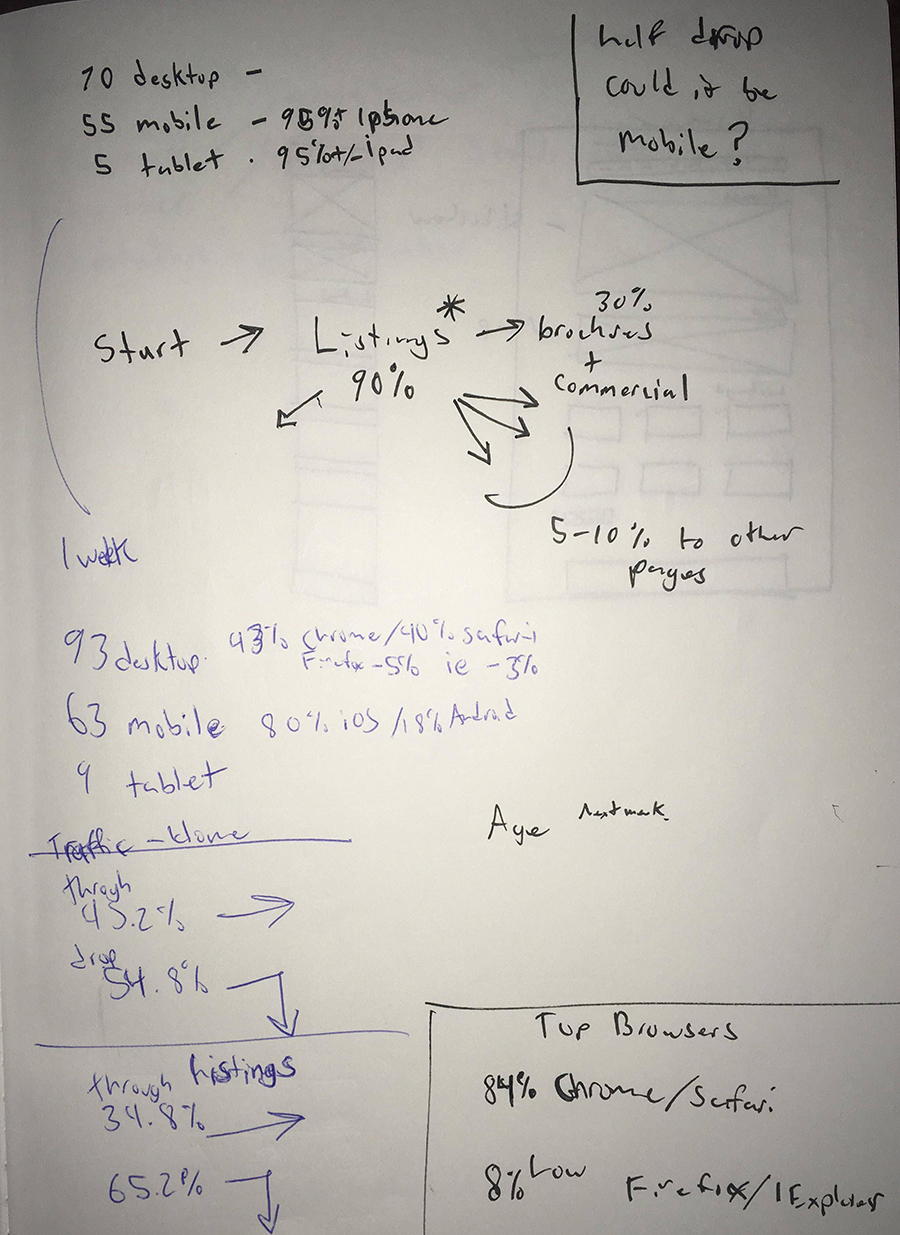 70 desktop -
55 mobile - 95%± Iphone
5 tablet . 95%+/- ipad
half drop
could it be
mobile?
Start → Listings* → 30% brochures
90%
+
commercial
5-10% to other
pages
1 week
93 desktop. 43% Chrome/40% Safari
Firefox -5% ie -3%
63 mobile 80% iOS /18% Android
9 tablet
Traffic -
through
45.2%
drop
54.8%
Listings
through
34.8%
65.2%
Age
Top Browsers
84% Chrome/Safari
8% Low Firefox/IExplorer